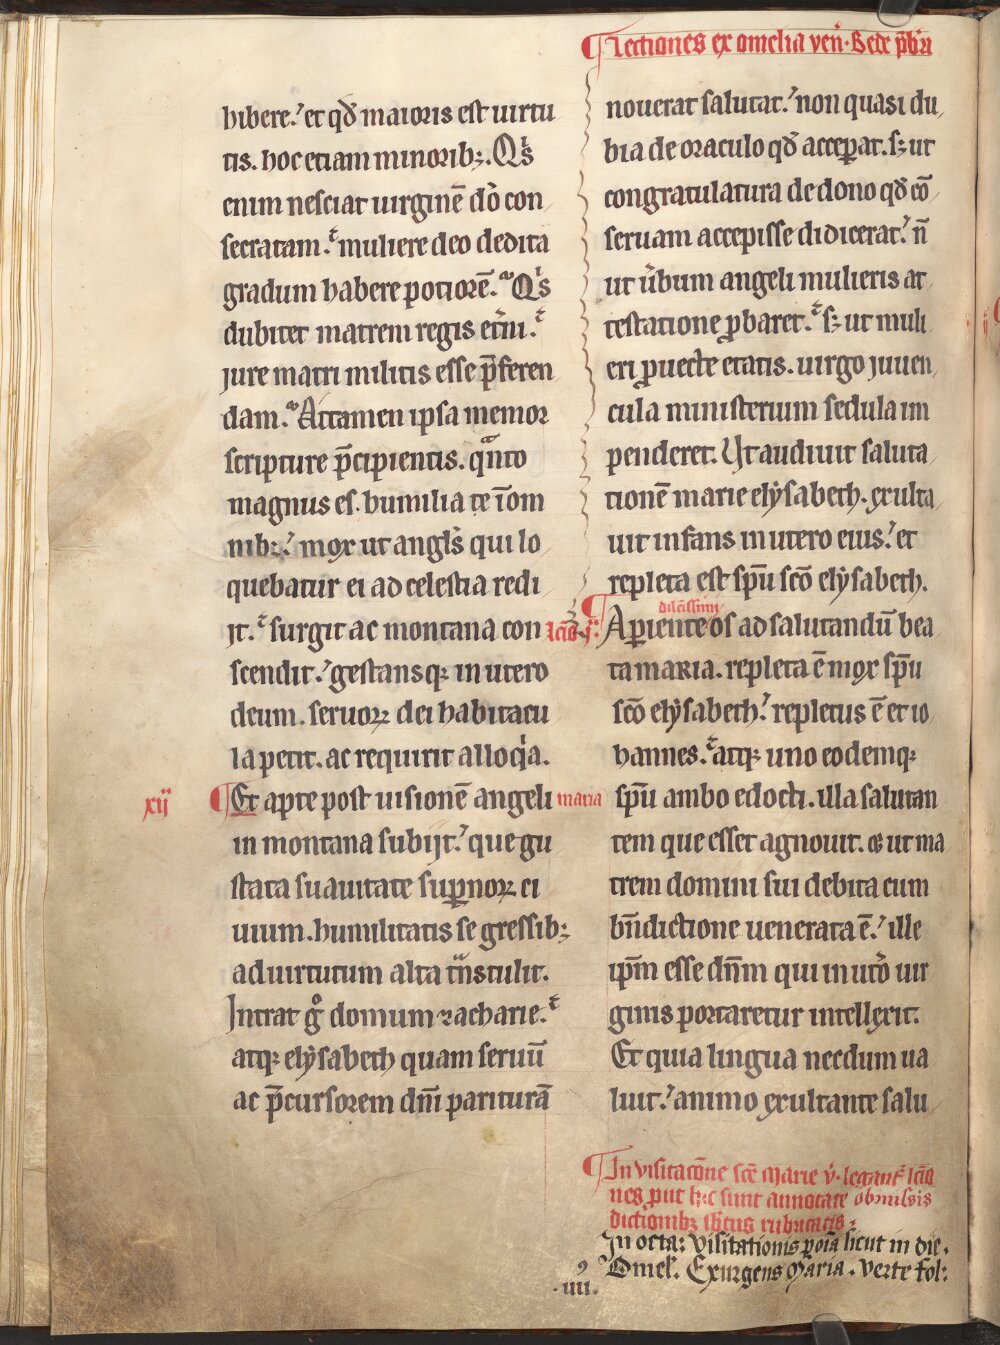 ¶Lectiones ex omelia veñ. Bede p̄b̄ri
bibere. et qđ maioris est uirtu
tis. hoc etiam minorib;. Qͥs
enim nesciat uirginē dõ con
secratam. muliere deo dedita
gradum habere potiorē. Qͥs
dubitet matrem regis et̄ni.
jure matri militis esse p̄feren
dam. Attamen ipsa memor
scripture p̄cipientis. qᵃnto
magnus es. humilia te ī om
nib;. mox ut angl̄s qui lo
quebatur ei ad celestia redi
jt. surgit ac montana con
scendit. gestansqꝫ in utero
deum. seruoꝝ dei habitacu
la petit. ac requirit alloqͥa.
xij ¶Et apte post uisionē angeli maria
in montana subijt. que gu
stata suauitate suꝑnoꝝ ci
uium. humilitatis se gressib;
ad uirtutum alta tᵃnstulit.
Intrat gͦ domum zacharie.
atqꝫ elẏsabeth quam seruū
ac p̄cursorem dñi pariturā
nouerat salutat. non quasi du
bia de oraculo qđ acceꝑat. sꝫ ut
congratulatura de dono qđ cō
seruam accepisse didicerat. ñ
ut ũbum angeli mulieris at
testatione ꝓbaret. sꝫ ut muli
eri ꝓuecte etatis. uirgo juuen
cula ministerium sedula im
penderet. Ut audiuit saluta
tionē marie elẏsabeth. exulta
uit infans in utero eius. et
repleta est sp̄u sc̄o elẏsabeth.
dilc̄issimi
lc̄io j. ¶Aꝑiente os ad salutandū bea
ta maria. repleta ē mox sp̄u
sc̄o elẏsabeth. repletus ē et io
hannes. atqꝫ uno eodemqꝫ
sp̄u ambo edocti. illa salutan
tem que esset agnouit. et ut ma
trem domini sui debita cum
bn̄dictione uenerata ē. ille
ip̄m esse dn̄m qui in ut̄o uir
ginis portaretur intellexit.
Et quia lingua necdum ua
luit. animo exultante salu
¶In visitac̄one sc̄e Marie v̄. legant᷑ lc̄io
nes put hec sunt annotate obmissis
dictionibꝫ subtus rubricatis.
In octa: visitationis ꝑ oĩa sicut in die.
Omel. Exurgens Maria. verte fol:
.iiii.